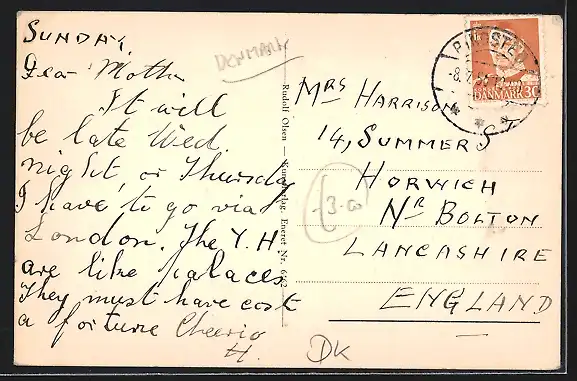 SUNDAY
Dear Mother
It will
be late Wed.
night, or Thursday
I have to go via
London. The Y.H
are like palaces
They must have cost
a fortune Cheerio
H.
DENMARK
Rudolf Olsen — Kunstforlag. Eneret Nr.
MRS HARRISON
14, SUMMER ST
HORWICH
NR BOLTON
LANCASHIRE
ENGLAND
-3-00
DK
DANMARK 30